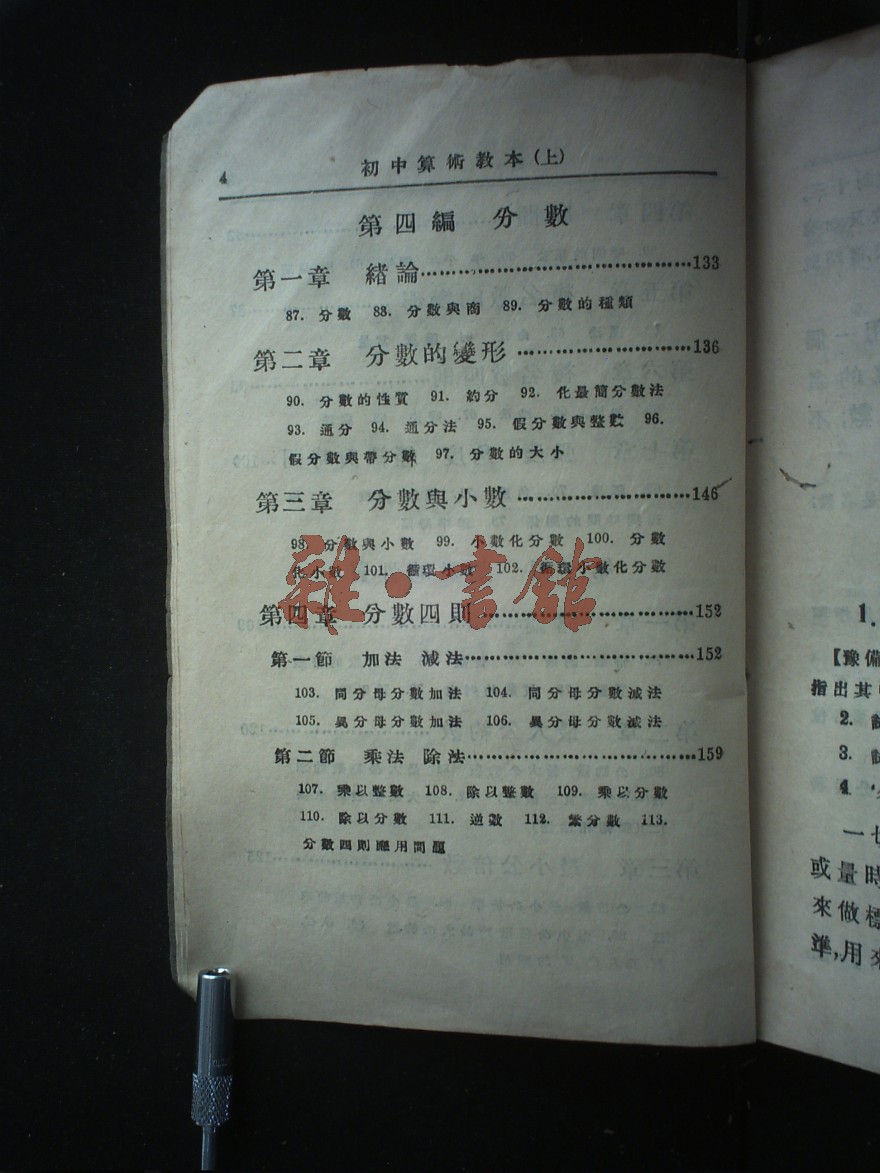 4
初中算術教本(上)
第四編 分數
第一章 緒論……………………………133
87. 分數 88. 分數與商 89. 分數的種類
第二章 分數的變形…………………136
90. 分數的性質 91. 約分 92. 化最簡分數法
93. 通分 94. 通分法 95. 假分數與整數 96.
假分數與帶分數 97. 分數的大小
第三章 分數與小數…………………146
98. 分數與小數 99. 小數化分數 100. 分數
化小數 101. 循環小數 102. 循環小數化分數
第四章 分數四則……………………152
第一節 加法 減法……………………152
103. 同分母分數加法 104. 同分母分數減法
105. 異分母分數加法 106. 異分母分數減法
第二節 乘法 除法……………………159
107. 乘以整數 108. 除以整數 109. 乘以分數
110. 除以分數 111. 逆數 112. 繁分數 113.
分數四則應用問題
雜·書館
1.
【豫備
指出其
2.
3.
4
一
或量時
來做標
準,用來